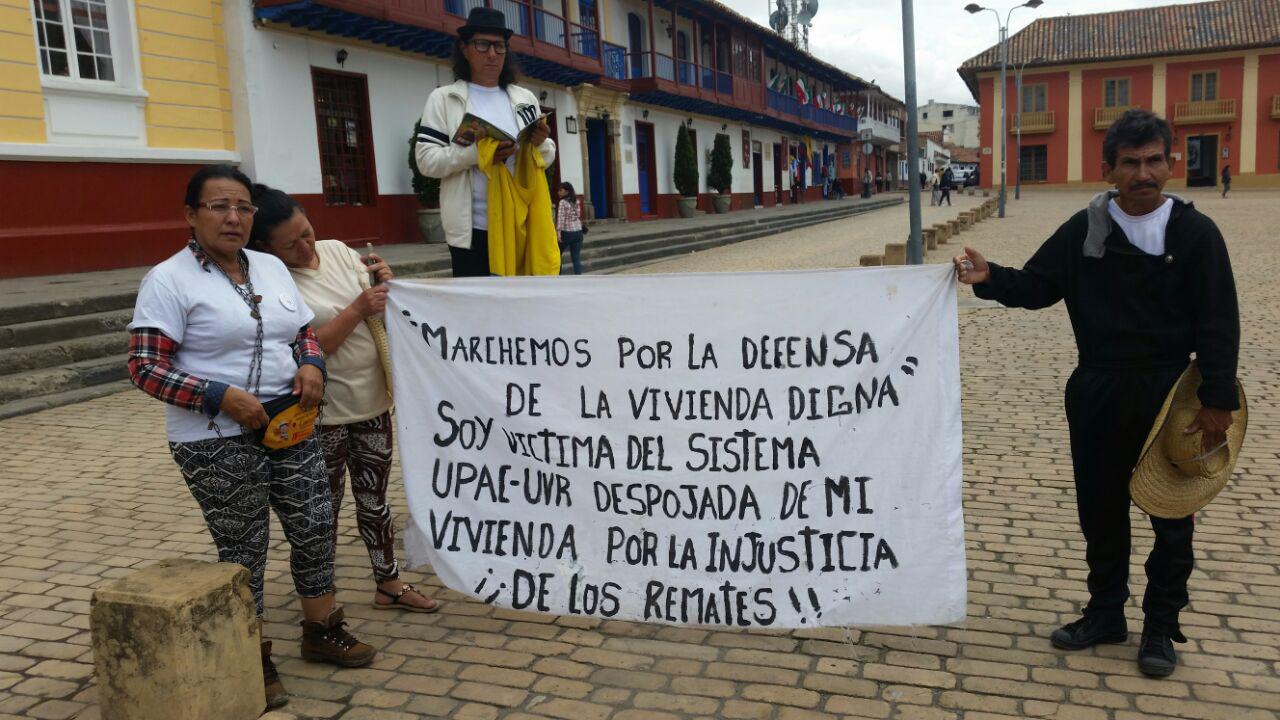 "MARCHEMOS POR LA DEFENSA
DE LA VIVIENDA DIGNA"
SOY VICTIMA DEL SISTEMA
UPAC-UVR DESPOJADA DE MI
VIVIENDA POR LA INJUSTICIA
¡¡DE LOS REMATES!!